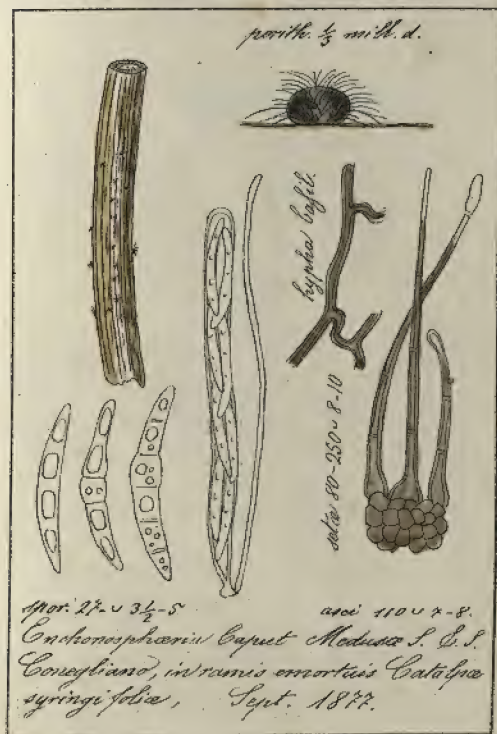 perith. ⅓ mill. d.
hypha basil.
setæ 80-250 ⌣ 8-10
spor. 27 ⌣ 3½-5
asci 110 ⌣ 7-8.
Enchnosphæria Caput Medusæ S. & S.
Conegliano, in ramis emortuis Catalpæ
syringifoliæ, Sept. 1877.